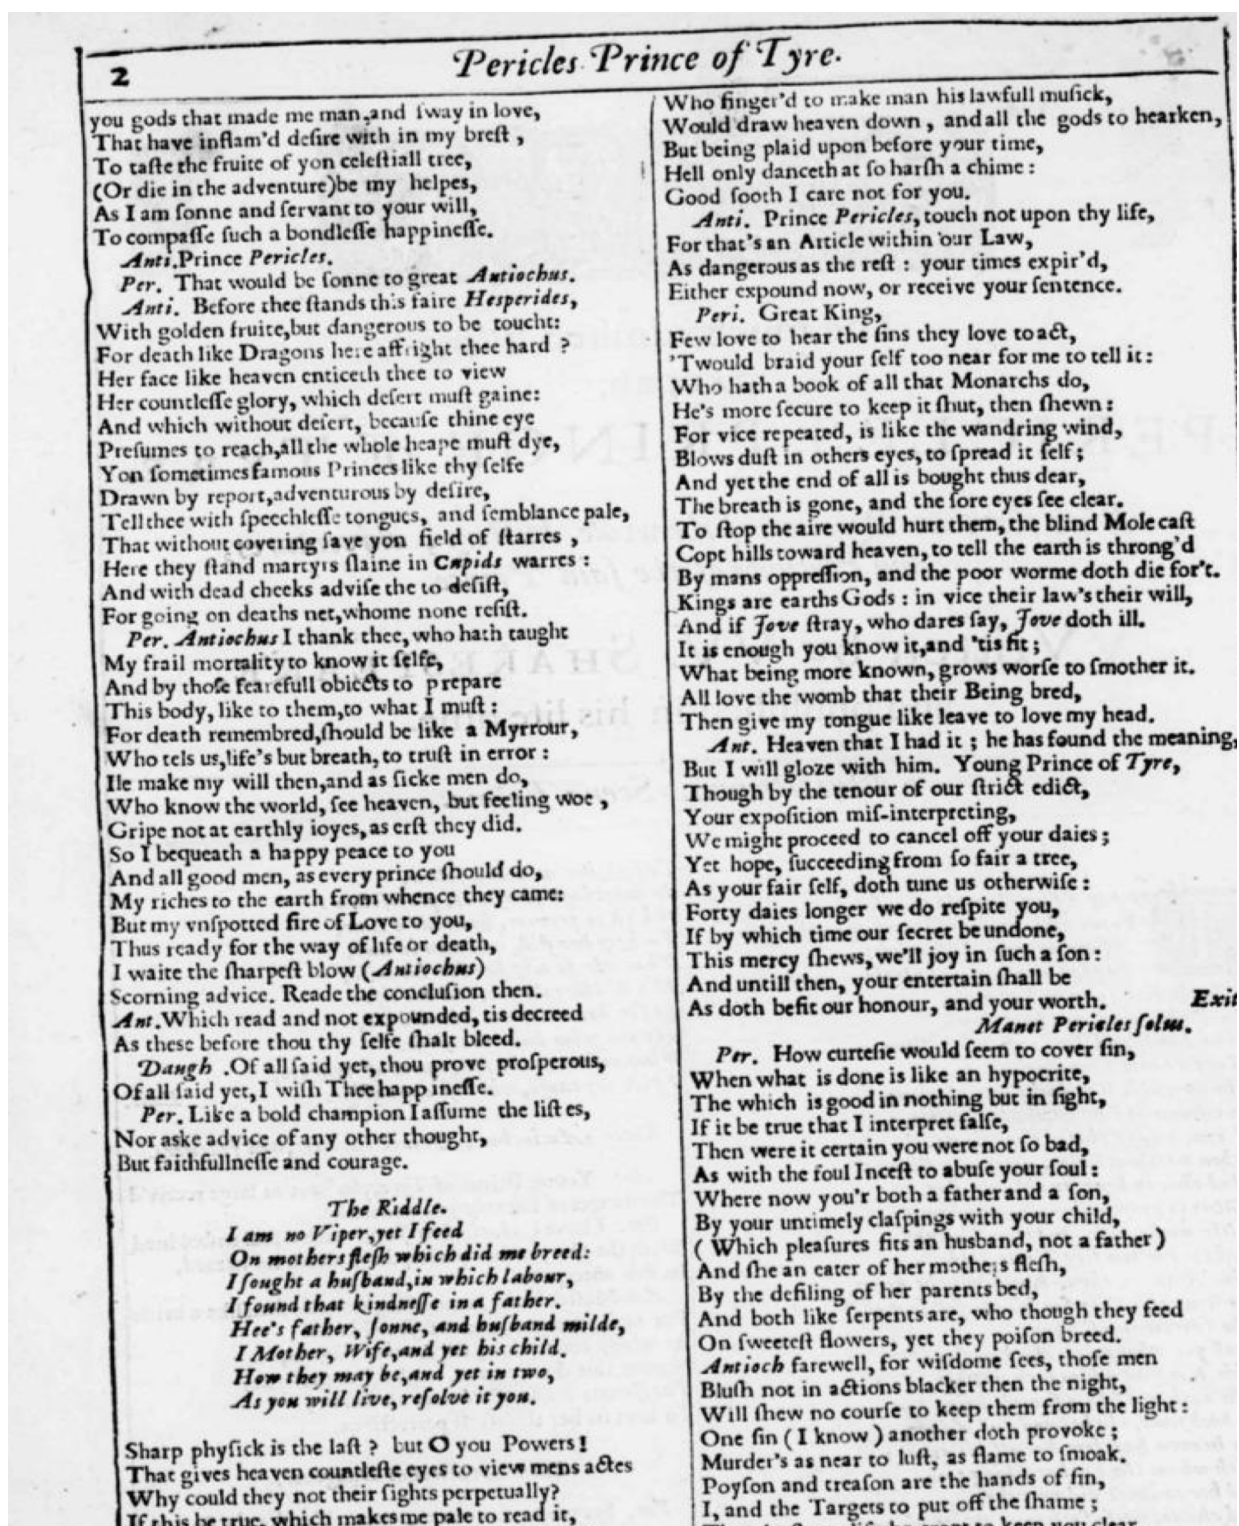 2
Pericles Prince of Tyre.
you gods that made me man, and sway in love,
That have inflam'd desire with in my brest,
To taste the fruite of yon celestiall tree,
(Or die in the adventure)be my helpes,
As I am sonne and servant to your will,
To compasse such a bondlesse happinesse.
Anti.Prince Pericles.
Per. That would be sonne to great Antiochus.
Anti. Before thee stands this faire Hesperides,
With golden fruite,but dangerous to be toucht:
For death like Dragons here affright thee hard ?
Her face like heaven enticeth thee to view
Her countlesse glory, which desert must gaine:
And which without desert, because thine eye
Presumes to reach,all the whole heape must dye,
Yon sometimes famous Princes like thy selfe
Drawn by report,adventurous by desire,
Tell thee with speechlesse tongues, and semblance pale,
That without covering save yon field of starres ,
Here they stand martyrs slaine in Cupids warres :
And with dead cheeks advise the to desist,
For going on deaths net,whome none resist.
Per. Antiochus I thank thee, who hath taught
My frail mortality to know it selfe,
And by those fearefull obiects to prepare
This body, like to them,to what I must :
For death remembred,should be like a Myrrour,
Who tels us,life's but breath, to trust in error :
Ile make my will then,and as sicke men do,
Who know the world, see heaven, but feeling woe ,
Gripe not at earthly ioyes, as erst they did.
So I bequeath a happy peace to you
And all good men, as every prince should do,
My riches to the earth from whence they came:
But my vnspotted fire of Love to you,
Thus ready for the way of life or death,
I waite the sharpest blow (Antiochus)
Scorning advice. Reade the conclusion then.
Ant.Which read and not expounded, tis decreed
As these before thou thy selfe shalt bleed.
Daugh .Of all said yet, thou prove prosperous,
Of all said yet, I wish Thee happinesse.
Per. Like a bold champion I assume the listes,
Nor aske advice of any other thought,
But faithfullnesse and courage.
The Riddle.
I am no Viper,yet I feed
On mothers flesh which did me breed:
I sought a husband,in which labour,
I found that kindnesse in a father.
Hee's father, sonne, and husband milde,
I Mother, Wife,and yet his child.
How they may be,and yet in two,
As you will live, resolve it you.
Sharp physick is the last ? but O you Powers!
That gives heaven countleste eyes to view mens actes
Why could they not their sights perpetually?
If this be true, which makes me pale to read it,
Who finger'd to make man his lawfull musick,
Would draw heaven down , and all the gods to hearken,
But being plaid upon before your time,
Hell only danceth at so harsh a chime :
Good sooth I care not for you.
Anti. Prince Pericles, touch not upon thy life,
For that's an Article within our Law,
As dangerous as the rest : your times expir'd,
Either expound now, or receive your sentence.
Peri. Great King,
Few love to hear the sins they love to act,
'Twould braid your self too near for me to tell it:
Who hath a book of all that Monarchs do,
He's more secure to keep it shut, then shewn :
For vice repeated, is like the wandring wind,
Blows dust in others eyes, to spread it self ;
And yet the end of all is bought thus dear,
The breath is gone, and the sore eyes see clear.
To stop the aire would hurt them, the blind Mole cast
Copt hills toward heaven, to tell the earth is throng'd
By mans oppression, and the poor worme doth die for't.
Kings are earths Gods : in vice their law's their will,
And if Jove stray, who dares say, Jove doth ill.
It is enough you know it,and 'tis fit ;
What being more known, grows worse to smother it.
All love the womb that their Being bred,
Then give my tongue like leave to love my head.
Ant. Heaven that I had it ; he has found the meaning,
But I will gloze with him. Young Prince of Tyre,
Though by the tenour of our strict edict,
Your exposition mis-interpreting,
We might proceed to cancel off your daies ;
Yet hope, succeeding from so fair a tree,
As your fair self, doth tune us otherwise :
Forty daies longer we do respite you,
If by which time our secret be undone,
This mercy shews, we'll joy in such a son :
And untill then, your entertain shall be
As doth befit our honour, and your worth. Exit
Manet Pericles solus.
Per. How curtesie would seem to cover sin,
When what is done is like an hypocrite,
The which is good in nothing but in sight,
If it be true that I interpret false,
Then were it certain you were not so bad,
As with the foul Incest to abuse your soul :
Where now you'r both a father and a son,
By your untimely claspings with your child,
( Which pleasures fits an husband, not a father )
And she an eater of her mothers flesh,
By the defiling of her parents bed,
And both like serpents are, who though they feed
On sweetest flowers, yet they poison breed.
Antioch farewell, for wisdome sees, those men
Blush not in actions blacker then the night,
Will shew no course to keep them from the light :
One sin ( I know ) another doth provoke ;
Murder's as near to lust, as flame to smoak.
Poyson and treason are the hands of sin,
I, and the Targets to put off the shame ;